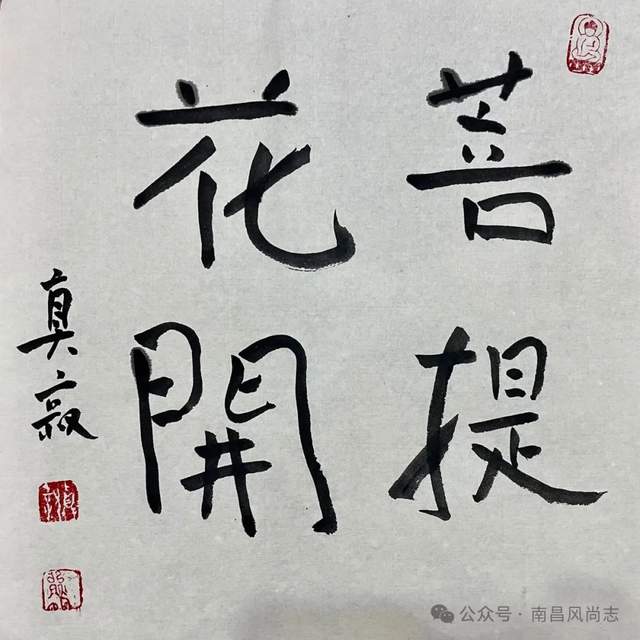 菩提
花開
真寂
公众号·南昌风尚志